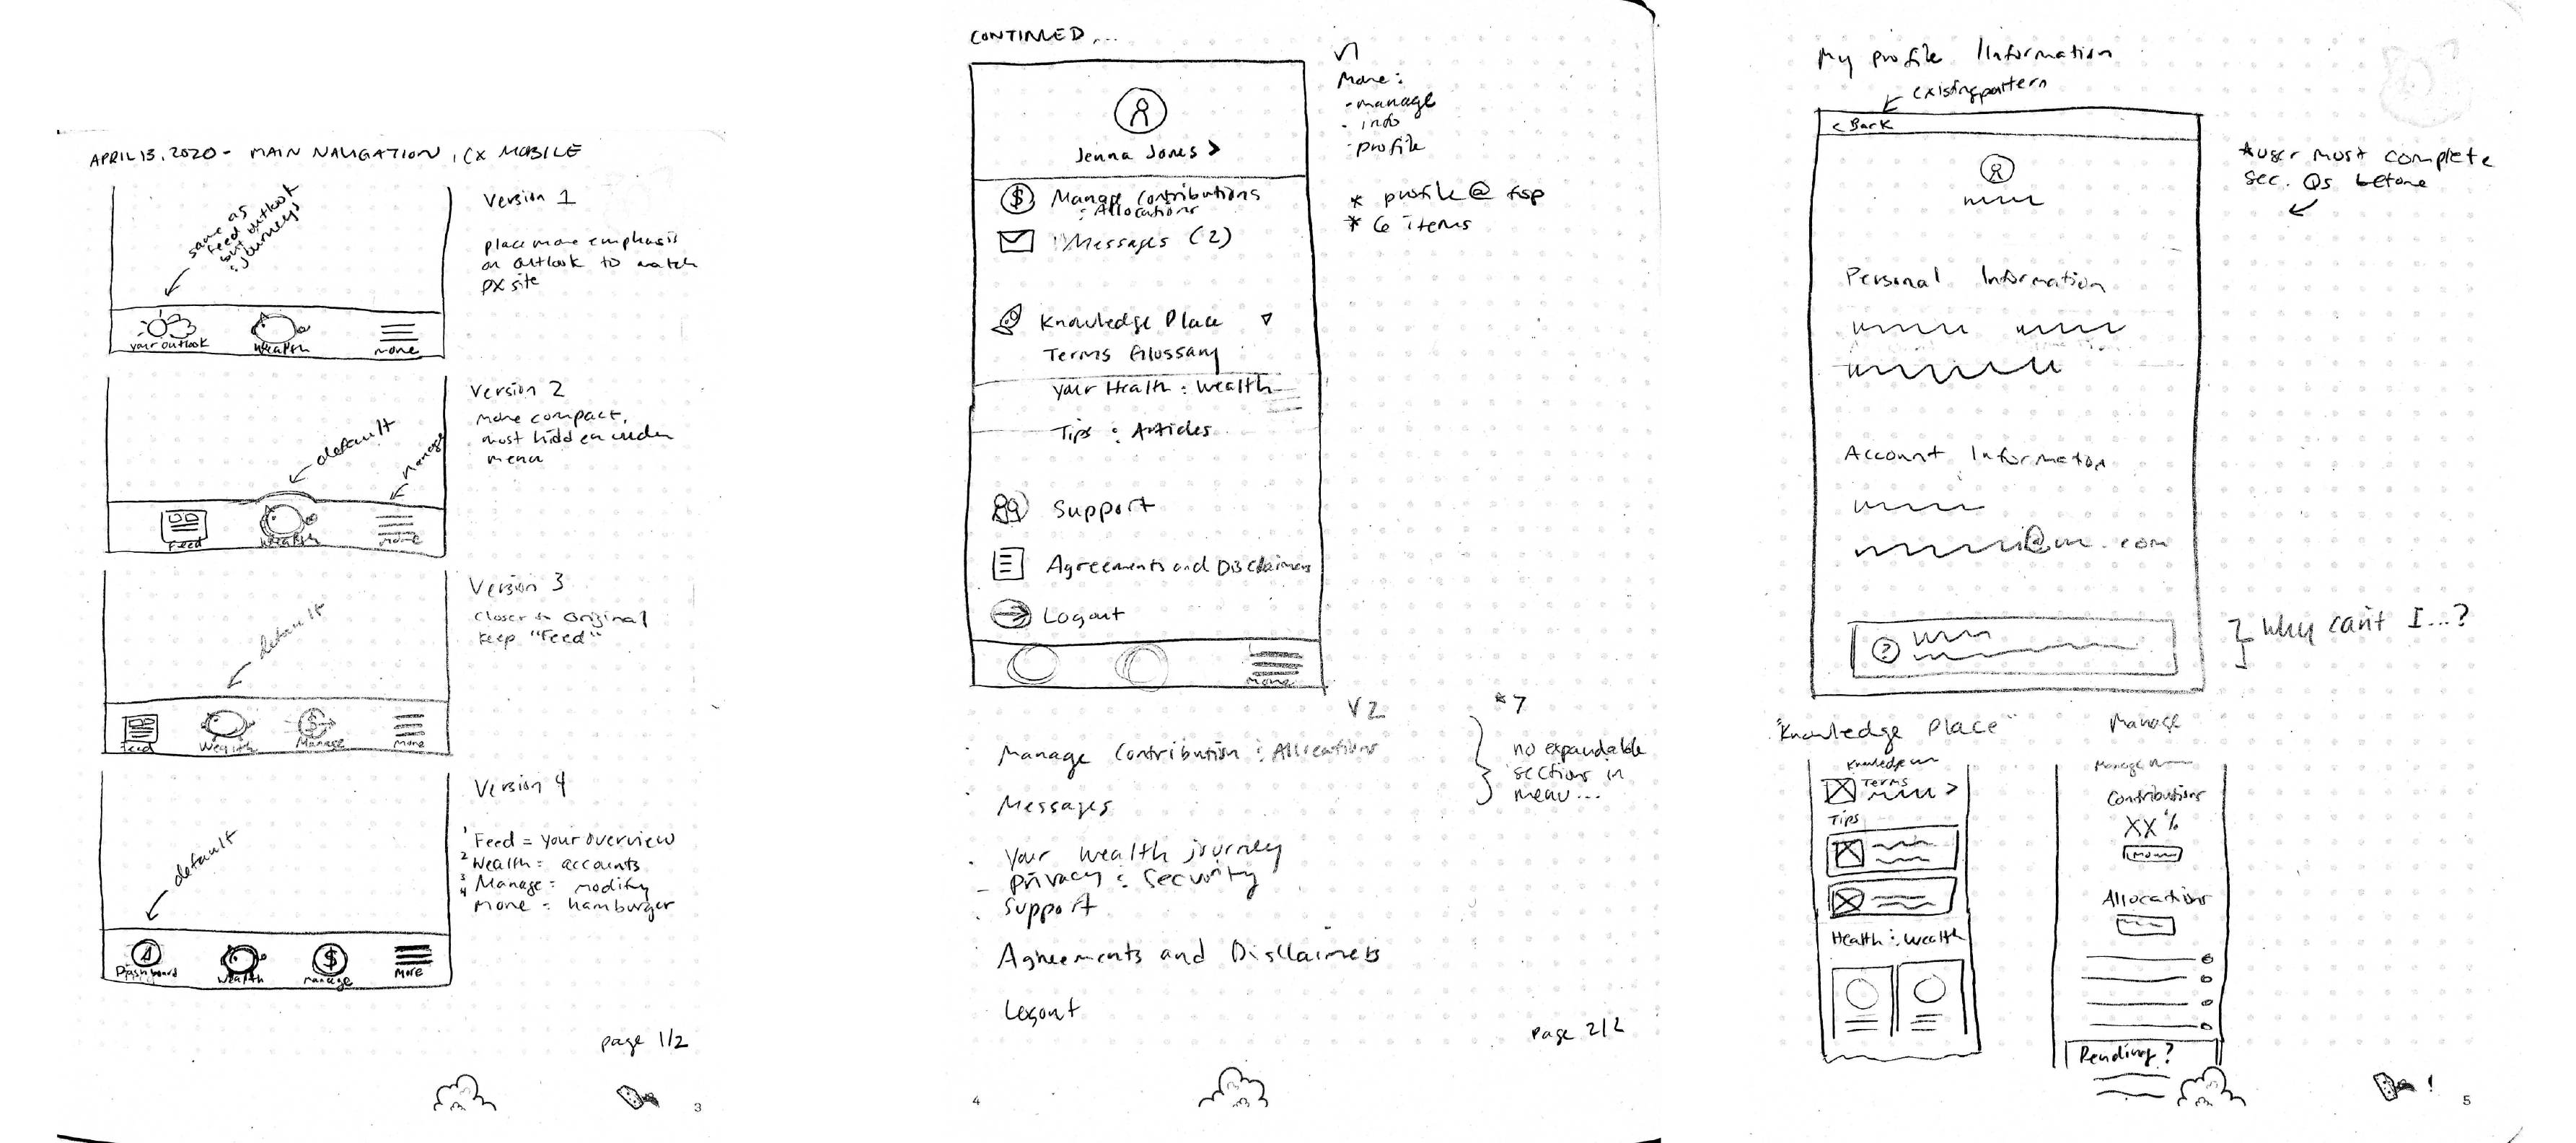 APRIL 13, 2020 - MAIN NAVIGATION, CX MOBILE
same as
feed but outlook
: journeys
Version 1
place more emphasis
on outlook to match
PX site
your outlook
Wealth
more
Version 2
more compact,
most hidden under
menu
default
manage
Feed
Wealth
More
Version 3
closer to original
keep "Feed"
default
Feed
Wealth
Manage
More
Version 4
1 Feed = your overview
2 Wealth = accounts
3 Manage = modify
4 More = hamburger
default
Dashboard
Wealth
manage
More
page 1/2
3
CONTINUED...
Jenna Jones >
$ Manage Contributions
: Allocations
Messages (2)
Knowledge Place
Terms Glossary
your Health : Wealth
Tips : Articles
Support
Agreements and Disclaimers
Logout
More
V1
More:
- manage
- info
- profile
* profile @ top
* 6 items
V2
*7
Manage Contribution : Allocations
Messages
Your wealth journey
Privacy : Security
Support
Agreements and Disclaimers
Logout
no expandable
sections in
menu...
page 2/2
4
My profile Information
existing pattern
< Back
*user must complete
sec. Qs before
Personal Information
Account Information
@ . com
?
Why can't I...?
"Knowledge Place"
Knowledge
Terms >
Tips
Health : Wealth
Manage
Manage
Contributions
XX %
Allocations
Pending?
!
5